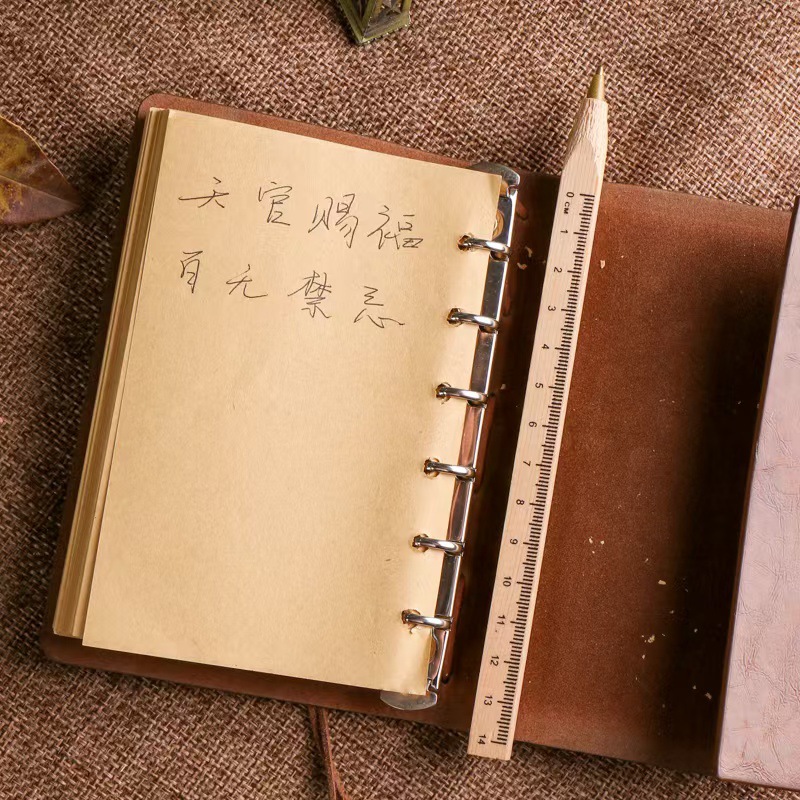 天官赐福
百无禁忌
0 CM 1 2 3 4 5 6 7 8 9 10 11 12 13 14